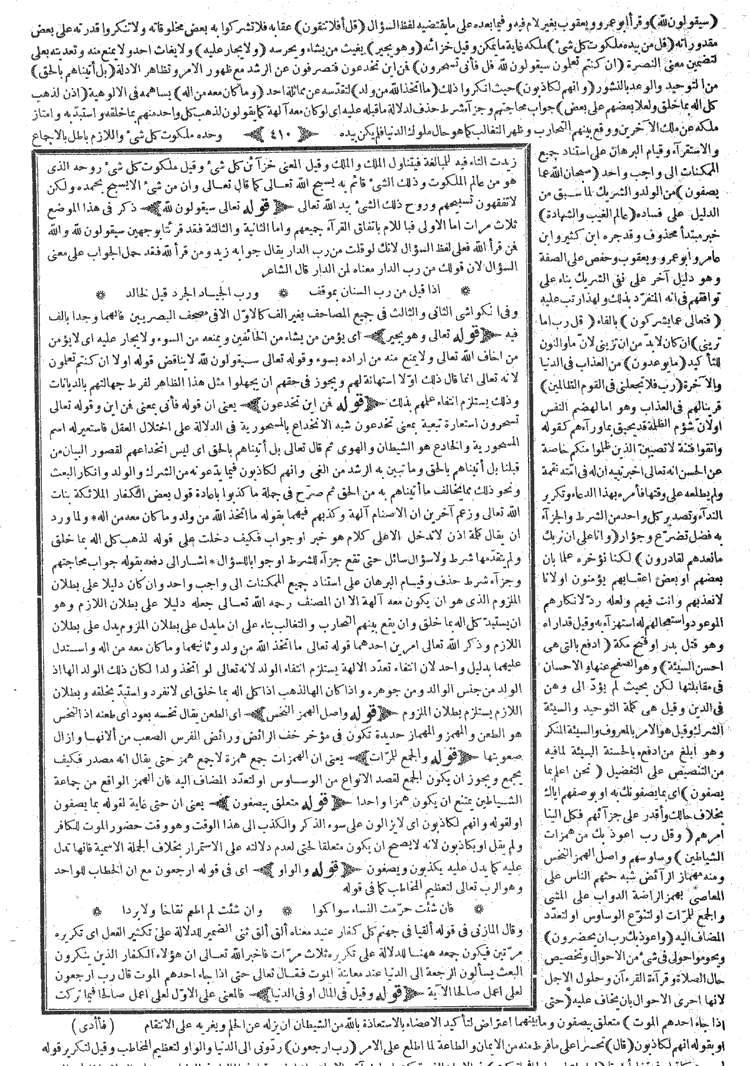 (سيقولون لله) وقرأ ابو عمرو ويعقوب بغير لام فيه وفيما بعده على ما يقتضيه لفظ السؤال (قل أفلا تتقون) عقابه فلا تشركوا به بعض مخلوقاته ولا تنكروا قدرته على بعض
مقدوراته (قل من بيده ملكوت كل شئ) ملكه غاية ما يمكن وقيل خزائنه (وهو يجير) يغيث من يشاء ويحرسه (ولا يجار عليه) ولا يغاث احد ولا يمنع منه وتعديته بعلى
لتضمين معنى النصرة (ان كنتم تعلمون سيقولون لله قل فأنى تسحرون) فمن اين تخدعون فتصرفون عن الرشد مع ظهور الامر وتظاهر الادلة (بل أتيناهم بالحق)
من التوحيد والوعد بالنشور (وانهم لكاذبون) حيث انكروا ذلك (ما اتخذ الله من ولد) لتقدسه عن مماثلة احد (وما كان معه من اله) يساهمه فى الالوهية (اذن لذهب
كل اله بما خلق ولعلا بعضهم على بعض) جواب محاجتهم وجزآء شرط حذف لدلالة ما قبله عليه اى لو كان معه آلهة كما يقولون لذهب كل واحد منهم بما خلقه واستبد به وامتاز
ملكه عن ملك الآخرين ووقع بينهم التحارب وظهر التغالب كما هو حال ملوك الدنيا فلم يكن بيده ﴿٤١٠﴾ وحده ملكوت كل شئ واللازم باطل بالاجماع
والاستقرآء وقيام البرهان على استناد جميع
الممكنات الى واجب واحد (سبحان الله عما
يصفون) من الولد والشريك لما سبق من
الدليل على فساده (عالم الغيب والشهادة)
خبر مبتدأ محذوف وقد جره ابن كثير وابن
عامر وابو عمرو ويعقوب وحفص على الصفة
وهو دليل آخر على نفى الشريك بناء على
توافقهم فى انه المتفرد بذلك ولهذا رتب عليه
(فتعالى عما يشركون) بالفاء (قل رب اما
ترينى) ان كان لابد من ان ترينى لان ما والنون
للتأكيد (ما يوعدون) من العذاب فى الدنيا
والآخرة (رب فلا تجعلنى فى القوم الظالمين)
قرينا لهم فى العذاب وهو اما لهضم النفس
اولان شؤم الظلمة قد يحيق بما ورآءهم كقوله
واتقوا فتنة لا تصيبن الذين ظلموا منكم خاصة
عن الحسن انه تعالى اخبر نبيه ان له فى امته نقمة
ولم يطلعه على وقتها فأمره بهذا الدعاء وتكرير
الندآء وتصدير كل واحد من الشرط والجزآء
به فضل تضرع وجؤار (وانا على ان نريك
ما نعدهم لقادرون) لكنا نؤخره علما بان
بعضهم او بعض اعقابهم يؤمنون اولانا
لا نعذبهم وانت فيهم ولعله رد لانكارهم
الموعود واستعجالهم له استهزآء به وقيل قد اراه
وهو قتل بدر او فتح مكة (ادفع بالتى هى
احسن السيئة) وهو الصفح عنها والاحسان
فى مقابلتها لكن بحيث لم يؤد الى وهن
فى الدين وقيل هى كلمة التوحيد والسيئة
الشرك وقيل هو الامر بالمعروف والسيئة المنكر
وهو ابلغ من ادفع بالحسنة السيئة لما فيه
من التنصيص على التفضيل (نحن اعلم بما
يصفون) اى بما يصفونك به او بوصفهم اياك
بخلاف حالك وأقدر على جزآئهم فكل الينا
امرهم (وقل رب اعوذ بك من همزات
الشياطين) وساوسهم واصل الهمز النخس
ومنه مهماز الرآئض شبه حثهم الناس على
المعاصى بهمز الراضة الدواب على المشى
والجمع للمرات او لتنوع الوساوس او لتعدد
المضاف اليه (واعوذ بك رب ان يحضرون)
ويحوموا حولى فى شئ من الاحوال وتخصيص
حال الصلاة وقرآءة القرءآن وحلول الاجل
لانها احرى الاحوال بان يخاف عليه (حتى
اذا جاء احدهم الموت) متعلق بيصفون وما بينهما اعتراض لتأكيد الاعضاء بالاستعاذة بالله من الشيطان ان يزله عن الحلم ويغريه على الانتقام (فأأدى)
او بقوله انهم لكاذبون (قال) تحسرا على ما فرط منه من الايمان والطاعة لما اطلع على الامر (رب ارجعون) ردونى الى الدنيا والواو لتعظيم المخاطب وقيل لتكرير قوله
زيدت التاء فيه للمبالغة فيتناول الملك والملك وقيل المعنى خزآئن كل شئ وقيل ملكوت كل شئ روحه الذى
هو من عالم الملكوت وذلك الشئ قائم به يسبح الله تعالى كما قال تعالى وان من شئ الا يسبح بحمده ولكن
لا تفقهون تسبيحهم وروح ذلك الشئ بيد الله تعالى ﴿قوله تعالى سيقولون لله﴾ ذكر فى هذا الموضع
ثلاث مرات اما الاولى فبا للام باتفاق القرآء جميعهم واما الثانية والثالثة فقد قرئتا بوجهين سيقولون لله والله
فمن قرأ الله فعلى لفظ السؤال لانك لو قلت من رب الدار يقال جوابه زيد ومن قرأ لله فقد حمل الجواب على معنى
السؤال لان قولك من رب الدار معناه لمن الدار قال الشاعر
* اذا قيل من رب السنان بموقف * ورب الجياد الجرد قيل لخالد *
وفى انكواشى الثانى والثالث فى جميع المصاحف بغير الف كالاول الا فى مصحف البصريين فانهما وجدا بالف
فيه ﴿قوله تعالى وهو يجير﴾ اى يؤمن من يشاء من الخائفين ويمنعه من السوء ولا يجار عليه اى لا يؤمن
من اخاف الله تعالى ولا يمنع منه من اراده بسوء وقوله تعالى سيقولون لله لا يناقض قوله اولا ان كنتم تعلمون
لانه تعالى انما قال ذلك اولا استهانة لهم ويجوز فى حقهم ان يجهلوا مثل هذا الظاهر لفرط جهالتهم بالديانات
وذلك يستلزم انتفاء علمهم بذلك ﴿قوله فمن اين تخدعون﴾ يعنى ان قوله فأنى بمعنى فمن اين وقوله تعالى
تسحرون استعارة تبعية بمعنى تخدعون شبه الانخداع بالمسحورية فى الدلالة على اختلال العقل فاستعير له اسم
المسحورية والخادع هو الشيطان والهوى ثم قال تعالى بل أتيناهم بالحق اى ليس انخداعهم لقصور البيان من
قبلنا بل أتيناهم بالحق وما تبين به الرشد من الغى وانهم لكاذبون فيما يدعونه من الشرك والولد وانكار البعث
ونحو ذلك مما يخالف ما أتيناهم به من الحق ثم صرح فى جملة ما كذبوا بابادة قول بعض الكفار الملائكة بنات
الله تعالى وزعم آخرين ان الاصنام آلهة وكذبهم فيهما بقوله ما اتخذ الله من ولد وما كان معه من اله * ولما ورد
ان يقال كلمة اذن لا تدخل الا على كلام هو خبر او جواب فكيف دخلت على قوله لذهب كل اله بما خلق
ولم يتقدمها شرط ولا سؤال سائل حتى تقع جزآء للشرط او جوابا للسؤال * اشار الى دفعه بقوله جواب محاجتهم
وجزآء شرط حذف وقيام البرهان على استناد جميع الممكنات الى واجب واحد وان كان دليلا على بطلان
الملزوم الذى هو ان يكون معه آلهة الا ان المصنف رحمه الله تعالى جعله دليلا على بطلان اللازم وهو
ان يستبد كل اله بما خلق وان يقع بينهم التحارب والتغالب بناء على ان ما يدل على بطلان الملزوم يدل على بطلان
اللازم وذكر الله تعالى امرين احدهما قوله تعالى ما اتخذ الله من ولد وثانيهما وما كان معه من اله واستدل
عليهما بدليل واحد لان انتفاء تعدد الالهة يستلزم انتفاء الولد لانه تعالى لو اتخذ ولدا لكان ذلك الولد الها اذ
الولد من جنس الوالد ومن جوهره واذا كان الها لذهب اذا كل اله بما خلق اى لانفرد واستبد بخلقه وبطلان
اللازم يستلزم بطلان الملزوم ﴿قوله واصل الهمز النخس﴾ اى الطعن يقال نخسه بعود اى طعنه اذ النخس
هو الطعن والمهمز والمهماز حديدة تكون فى مؤخر خف الرائض ورائض الفرس الصعب من ألانها وازال
صعوبتها ﴿قوله والجمع للمرات﴾ يعنى ان الهمزات جمع همزة لا جمع همز حتى يقال انه مصدر فكيف
يجمع ويجوز ان يكون الجمع لقصد الانواع من الوساوس او لتعدد المضاف اليه فان الهمز الواقع من جماعة
الشياطين يمتنع ان يكون همزا واحدا ﴿قوله متعلق بيصفون﴾ يعنى ان حتى غاية لقوله بما يصفون
او لقوله وانهم لكاذبون اى لا يزالون على سوء الذكر والكذب الى هذا الوقت وهو وقت حضور الموت للكافر
ولم يقل او بكاذبون لانه لا يصح ان يكون متعلقا لحتى لعدم دلالته على الاستمرار بخلاف الجملة الاسمية فانها تدل
عليه كما يدل عليه يكذبون ويصفون ﴿قوله والواو﴾ اى فى قوله ارجعون مع ان الخطاب للواحد
وهو الرب تعالى لتعظيم المخاطب كما فى قوله
* فان شئت حرمت النساء سواكوا * وان شئت لم اطعم نقاخا ولا بردا *
وقال المازنى فى قوله ألقيا فى جهنم كل كفار عنيد معناه ألق ألق ثنى الضمير للدلالة على تكثير الفعل اى تكريره
مرتين فيكون جمعه ههنا للدلالة على تكرره ثلاث مرات فأخبر الله تعالى ان هؤلاء الكفار الذين ينكرون
البعث يسألون الرجعة الى الدنيا عند معاينة الموت فقال تعالى حتى اذا جاء احدهم الموت قال رب ارجعون
لعلى اعمل صالحا الآية ﴿قوله وقيل فى المال او فى الدنيا﴾ فالمعنى على الاول لعلى اعمل صالحا فيما تركت